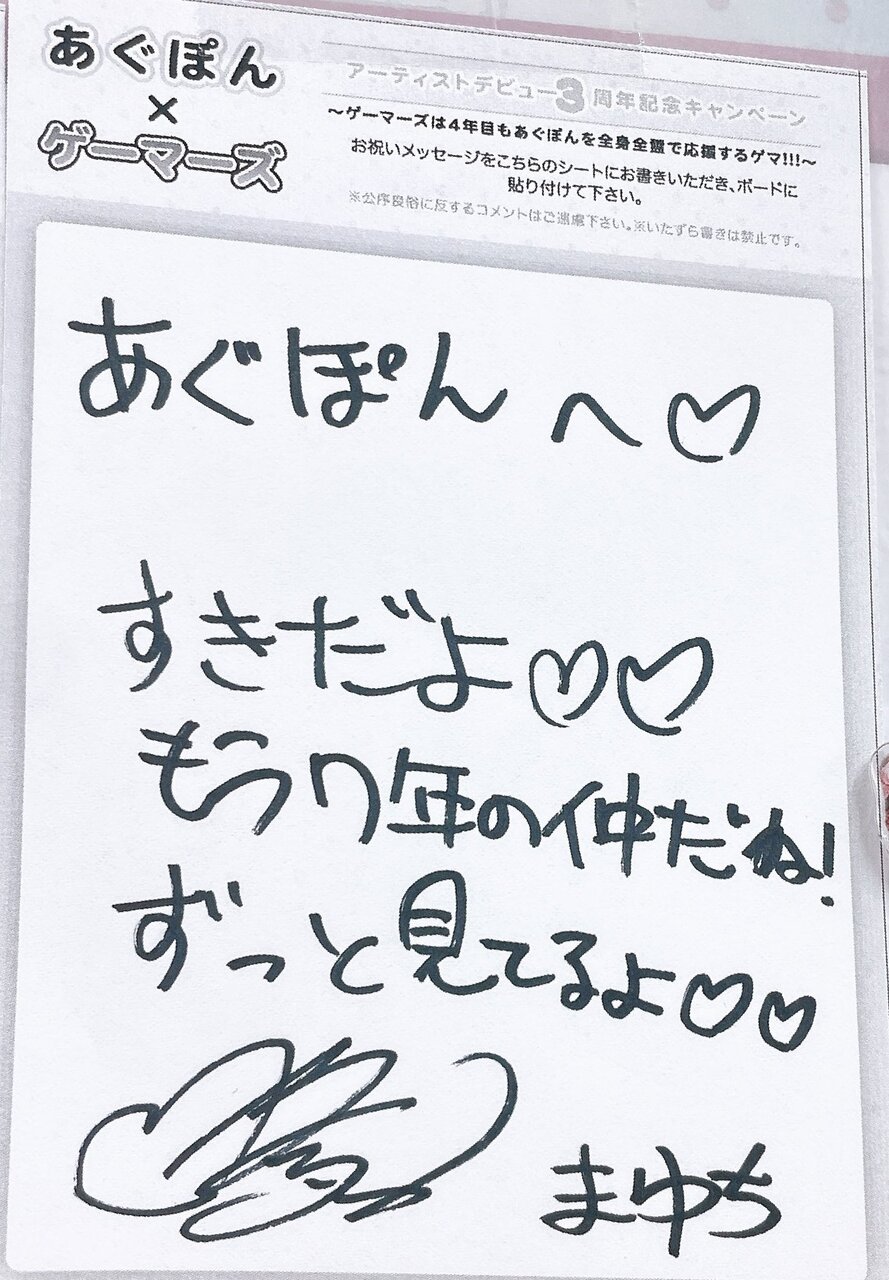 あぐぽん
×
ゲーマーズ
アーティストデビュー3周年記念キャンペーン
～ゲーマーズは4年目もあぐぽんを全身全霊で応援するゲマ!!!～
お祝いメッセージをこちらのシートにお書きいただき、ボードに
貼り付けて下さい。
※公序良俗に反するコメントはご遠慮下さい。※いたずら書きは禁止です。
あぐぽんへ♡
すきだよ♡♡
もう7年の仲だね!
ずっと見てるよ♡♡
まゆち